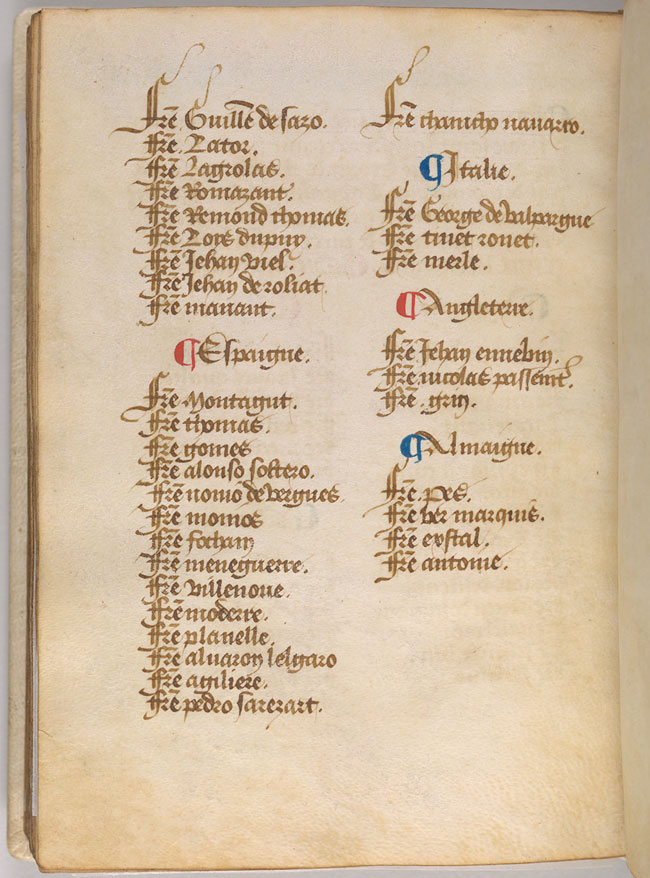 Frē Guillē de sazo.
Frē Tator.
Frē Lagrolas.
Frē Romazant.
Frē Remond thomas.
Frē Tors dupuy.
Frē Jehan viel.
Frē Jehan de roliat
Frē manant.
¶ Espaigne.
Frē Montagut.
Frē thomas.
Frē gomes
Frē alonso sottero.
Frē nonio de vergues
Frē momos
Frē
Frē meneguerre.
Frē villenoue.
Frē moderre.
Frē planelle.
Frē aluaron lelgaro
Frē agiliere.
Frē pedro sarezart.
Frē chanicho nauarro.
¶ Italie.
Frē George de valpargue
Frē tinet rouet.
Frē merle.
¶ Angleterre.
Frē Jehan ennebin.
Frē. nicolas
Frē. grin.
¶ Almaigne.
Frē. pes.
Frē ver marquis.
Frē
Frē antonie.